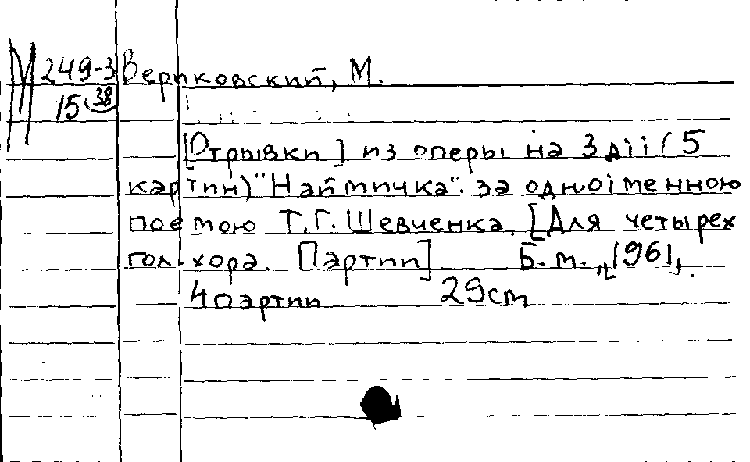 М 249-3 Вериковский, М.
15 38
[Отрывки] из оперы на 3 дії (5
картин) "Наймичка". за одноіменною
поемою Т.Г. Шевченка. [Для четырех
гол. хора. Партии] Б.м., [196],
4 партии 29cm